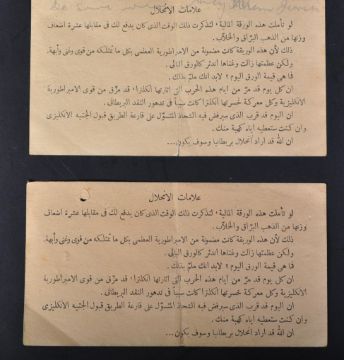 علامات الانحلال
لو تأملت هذه الورقة المالية، لتذكرت ذلك الوقت الذى كان يدفع لك فى مقابلها عشرة اضعاف
وزنها من الذهب البرّاق والحلاب.
ذلك لأن هذه الوريقة كانت مضمونة من الامبراطورية العظمى بكل ما تمتلكه من قوى وغنى وأبهة.
ولكن عظمتها زالت وغناها اندثر كالورق البالى.
فما هى قيمة الورق اليوم؟ لابد انك علم بذلك.
ان كل يوم قد مرّ من ايام هذه الحرب التى اثارتها انكلترا، قد مزّق من قوى الامبراطورية
الانكليزية وكل معركة خسرتها انكلترا كانت سبباً فى تدهور النقد البريطانى.
ان اليوم قد قرب الذى سيرفض فيه الشحاذ المتسوّل على قارعة الطريق قبول الجنيه الانكليزى
وان كنت ستعطيه اياه كهبة منك.
ان الله قد اراد انحلال بريطانيا وسوف يكون...
علامات الانحلال
لو تأملت هذه الورقة المالية، لتذكرت ذلك الوقت الذى كان يدفع لك فى مقابلها عشرة اضعاف
وزنها من الذهب البرّاق والحلاب.
ذلك لأن هذه الوريقة كانت مضمونة من الامبراطورية العظمى بكل ما تمتلكه من قوى وغنى وأبهة.
ولكن عظمتها زالت وغناها اندثر كالورق البالى.
فما هى قيمة الورق اليوم؟ لابد انك علم بذلك.
ان كل يوم قد مرّ من ايام هذه الحرب التى اثارتها انكلترا، قد مزّق من قوى الامبراطورية
الانكليزية وكل معركة خسرتها انكلترا كانت سبباً فى تدهور النقد البريطانى.
ان اليوم قد قرب الذى سيرفض فيه الشحاذ المتسوّل على قارعة الطريق قبول الجنيه الانكليزى
وان كنت ستعطيه اياه كهبة منك.
ان الله قد اراد انحلال بريطانيا وسوف يكون...